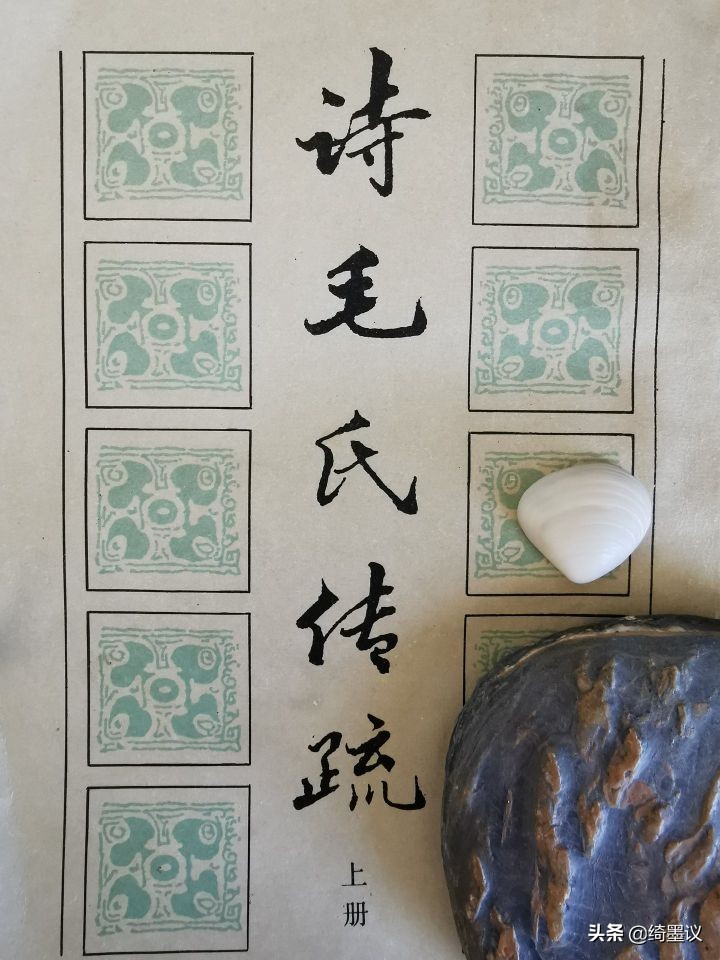 诗毛氏传疏
上册
头条 @绮墨议